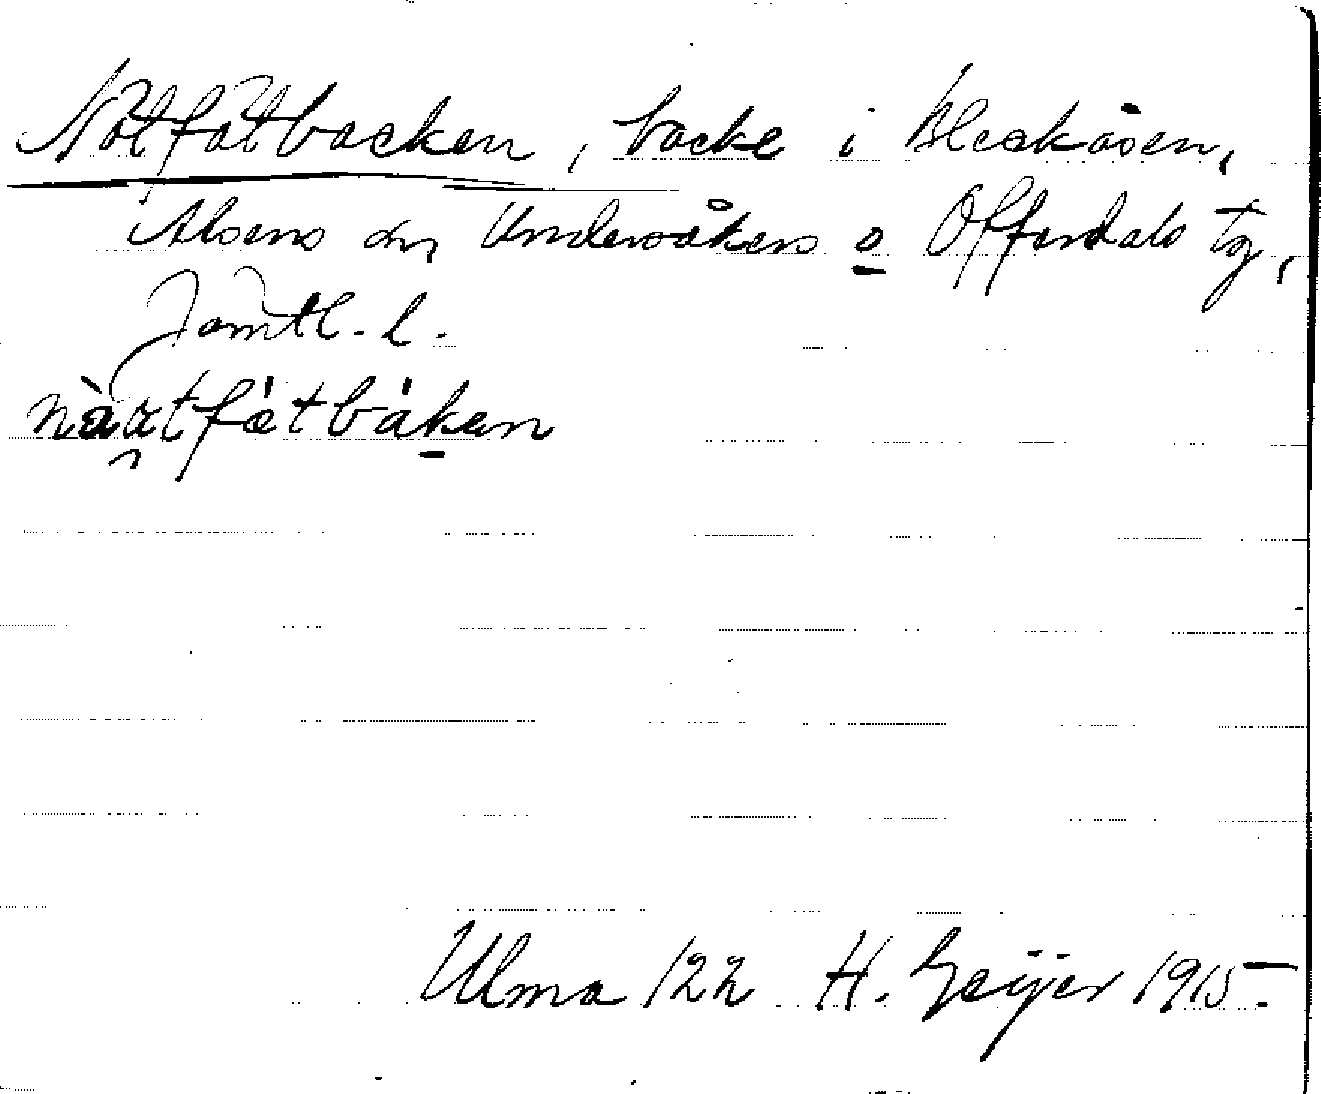 Nötfatbacken, backe i Bleckåsen,
Alsens sn, Undersåkers o Offerdals tg,
Jämtl. l.
Ulma 122 H. Geijer 1915.